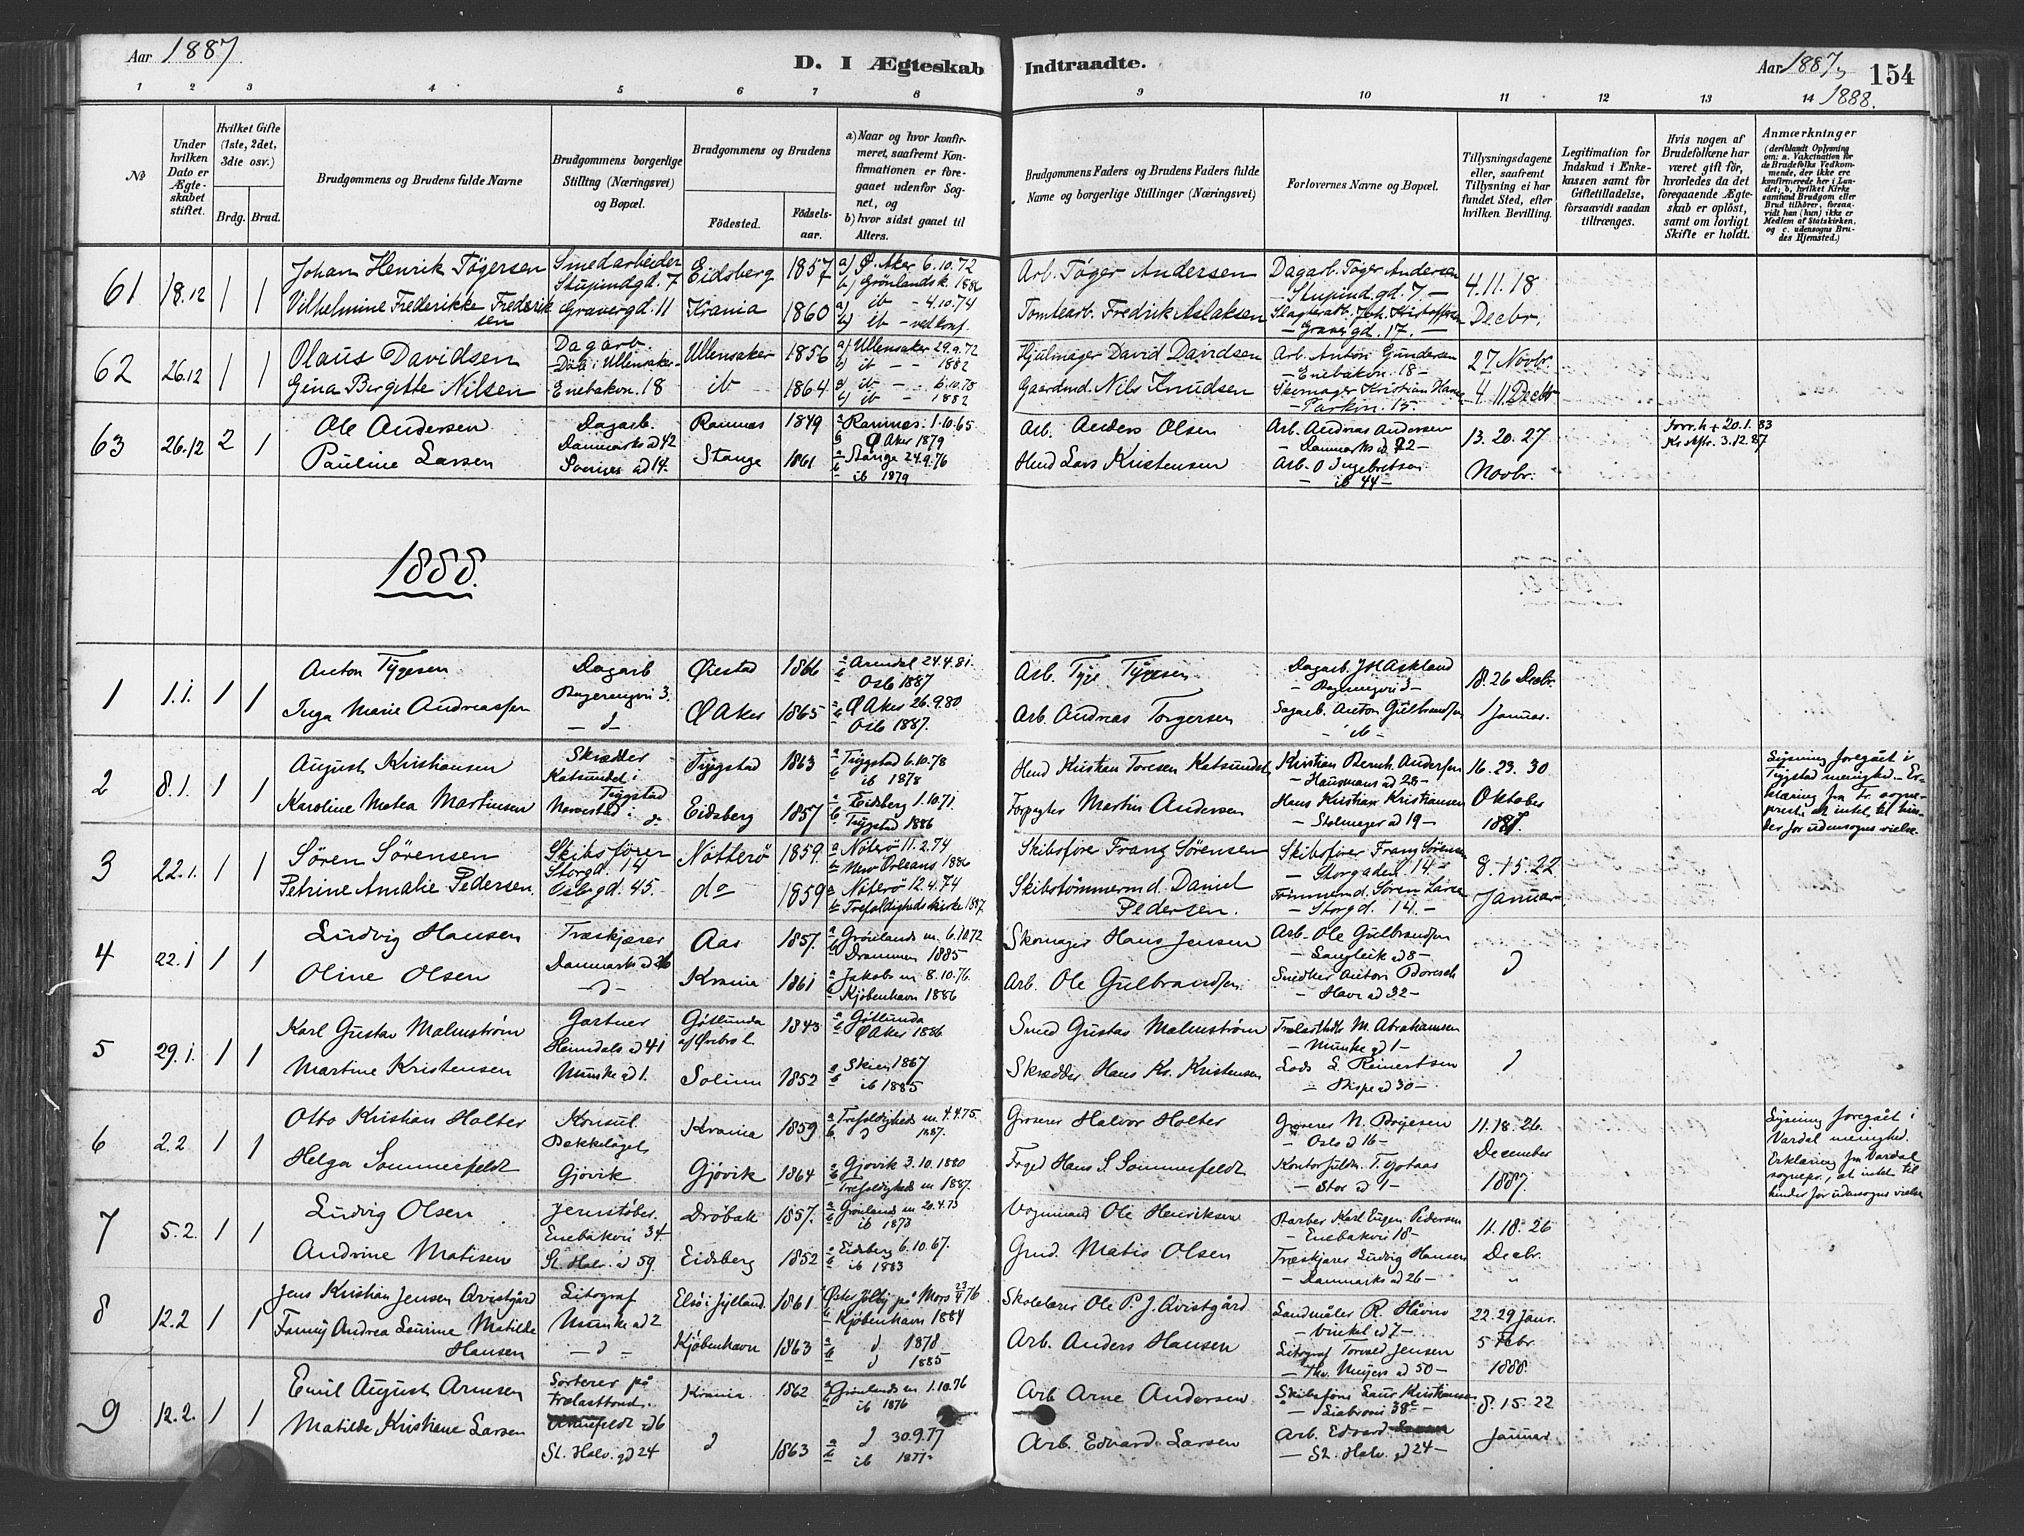 Aar 1887
D. I Ægteskab
Indtraadte.
Aar 1887 1888.
154
1 2 3 4 5 6 7 8
9 10 11 12 13 14
No
Under hvilken Dato er Ægteskabet stiftet.
Hvilket Gifte (1ste, 2det, 3die osv.)
Brdg. Brud.
Brudgommens og Brudens fulde Navne
Brudgommens borgerlige Stilling (Næringsvei) og Bopæl.
Brudgommens og Brudens
Fødested.
Fødselsaar.
a) Naar og hvor konfirmeret, saafremt Konfirmationen er foregaaet udenfor Sognet, og
b) hvor sidst gaaet til Alters.
Brudgommens Faders og Brudens Faders fulde Navne og borgerlige Stillinger (Næringsvei)
Forlovernes Navne og Bopæl.
Tillysningsdagene eller, saafremt Tillysning ei har fundet Sted, efter hvilken Bevilling.
Legitimation for Indskud i Enkekassen samt for Giftetilladelse, forsaavidt saadan tiltrænges.
Hvis nogen af Brudefolkene har været gift før, hvorledes da det foregaaende Ægteskab er opløst, samt om lovligt Skifte er holdt.
Anmærkninger
(deriblandt Oplysning om: a. Vakcination for de Brudefolks Vedkommende, der ikke ere konfirmerede her i Landet; b. hvilket Kirkesamfund Brudgom eller Brud tilhører, forsaavidt han (hun) ikke er Medlem af Statskirken, og c. udensogns Brudes Hjemsted.)
61 18.12 1 1
Johan Henrik Tøgersen Smedarbeider Stupindgd. 7 Eidsberg 1857 a) Ø. Aker 6.10.72 b) Grønlands k. 1886
Arb. Tøger Andersen Dagarb. Tøger Andersen - Stupind.gd. 7. - 4. 11. 18
Vilhelmine Frederikke Frederiksen Gravergd. 11 Krania 1860 a) ib - 4.10.74 b) ib - ved konf.
Tomtearb. Fredrik Aslaksen Slagterarb. Joh. Kristoffersen - Gravergd. 17. - Decbr.
62 26.12 1 1
Olaus Davidsen Dagarb. Døli i Ullensaker Ullensaker 1856 a) Ullensaker 29.9.72 b) ib - - 1882
Hjulmager David Davidsen Arb. Anton Gundersen - Enebakvn. 18 - 27 Novbr
Gina Birgitte Nilsen Enebakvn. 18 ib 1864 a) ib - - 6.10.78 b) ib - 1882
Gaardmd. Nils Knudsen Skomager Kristian Hansen - Parkvn. 15. 4. 11 Decbr
63 26.12 2 1
Ole Andersen Dagarb. Danmarks gd 42 Ramnæs 1849 a Ramnæs 1.10.65 b Ø Aker 1879
Arb. Anders Olsen Arb. Andreas Andersen - Danmarks gd 42 - 13. 20. 27
Forr. h + 20.1.83
Pauline Larsen Sveriges gd 14. Stange 1861 a Stange 24.9.76 b ib 1879
Hmd Lars Kristensen Arb. O Ingebretsen - ib 44 - Novbr.
1888.
1 1.1. 1 1
Anton Tygesen Dagarb Øiestad 1866 a Arendal 24.4.81. b Oslo 1887
Arb. Tyge Tygesen 18. 26 Decbr.
Inga Marie Andreassen - d - Ø Aker 1865 a Ø Aker 26.9.80 b Oslo 1887.
Arb. Andreas Torgersen Dagarb. Anton Gulbrandsen - ib - 1 Januar.
2 8.1. 1 1
August Kristiansen Skrædder Katsundet i Trygstad Trygstad 1863 a Trygstad 6.10.78 b ib 1878
Hmd Kristian Toresen Katsundet Kristian Bernh. Andersen - Hausmans gd 28 - 16. 23. 30
Karoline Matea Martinsen Eidsberg 1857 a Eidsberg 1.10.71. b Trygstad 1886
Forpagter Martin Andersen Hans Kristian Kristiansen - Stolmager gd 19 - Oktober 1887.
Lysning foregået i Trygstad menighed. - Erklæring fra Tr. sogneprest at intet til hinder for udensogns vielse.
3 22.1. 1 1
Søren Sørensen Skibsfører Storgd. 14 Nøtterø 1859. a Nøterø 11.2.74 b New Orleans 1886
Skibsfører Franz Sørensen Skibsfører Frans Sørensen - Storgaden 14 - 8. 15. 22
Petrine Amalie Pedersen. Oslogd. 45. do 1859 a Nøterø 12.4.74 b Trefoldigheds kirke 1887.
Skibstømmermd. Daniel Pedersen. Tømmermd. Søren Larsen - Storgd. 14. - Januar
4 22.1 1 1
Ludvig Hansen Træskjærer Danmarks gd 26 Aas 1857. a Grønlands m. 6.10.72 b Drammen 1885
Skomager Hans Jensen Arb. Ole Gulbrandsen - Langleik gd 8 -
Oline Olsen - d - Krania 1861 a Jakobs m 8.10.76. b Kjøbenhavn 1886
Arb. Ole Gulbrandsen Snedker Anton - Have gd 32 - d
5 29.1. 1 1
Karl Gustav Malmstrøm Gartner Heimdals gd 41 Gøtlunda af Ørebro l. 1843 a Gøtlunda b Ø Aker 1886
Smed Gustav Malmstrøm Trælasthdlr M. Abrahamsen - Munke gd 1 -
Martine Kristensen Munke gd 1. Solum 1852 a Skien 1867 b ib 1885
Skrædder Hans Kr. Kristensen Lods L. Reinertsen - gd 30 - d
6 2.2. 1 1
Otto Kristian Holter Konsul Bekkelaget Krania 1859 a Trefoldigheds m. 4.4.75. b d 1887.
Grosserer Halvor Holter Grosserer N. Børjesen - Oslo gd 16 - 11. 18. 26.
Helga Sommerfeldt Gjøvik Gjøvik 1864 a Gjøvik 3.10.1880 b Trefoldigheds m 1887.
Foged Hans S. Sommerfeldt - Stor gd 1 - December 1887.
Lysning foregået i Vardal menighed. Erklæring fra Vardal sognepr., at intet til hinder for udensogns vielse
7 5.2. 1 1
Ludvig Olsen Jernstøber. Enebakvei 34 Drøbak 1857. a Grønlands m 20.4.73 b ib 1873
Vognmand Ole Henriksen Barber Karl Eugen Pedersen - Enebakvei 18 - 11. 18. 26
Andrine Matisen St. Halv. gd 59. Eidsberg 1852 a Eidsberg 6.10.67. b ib 1883
Gmd. Matis Olsen Træskjærer Ludvig Hansen - Danmarks gd 26 - Decbr.
8 12.2 1 1
Jens Kristian Jensen Qvistgård Litograf Munke gd 2 Elsø i Jylland 1861 a Øster Jølby på Mors 23/4 76 b Kjøbenhavn 1884
Skolelærer Ole P. J. Qvistgård Landmåler R. Håvne - Vinkel gd 7 - 22. 29 Janr.
Fanny Andrea Laurine Matilde Hansen - d - Kjøbenhavn 1863 a d 1878 b d 1885
Arb. Anders Hansen Litograf Torvald Jensen - Thv. Meyers gd 50 - 5 Febr. 1888
9 12.2. 1 1
Emil August Arnesen Sorterer på trælasttomt. gd 6 Krania 1862 a Grønlands m 1.10.76 b ib 1876
Arb Arne Andersen Skibsfører Laur. Kristiansen - 38c - 8. 15. 22
Matilde Kristiane Larsen St. Halv. gd 24 d 1863 a d 30.9.77 b ib 1877.
Arb. Edvard Larsen Arb. Edvard - St. Halv. gd 24 - Januar